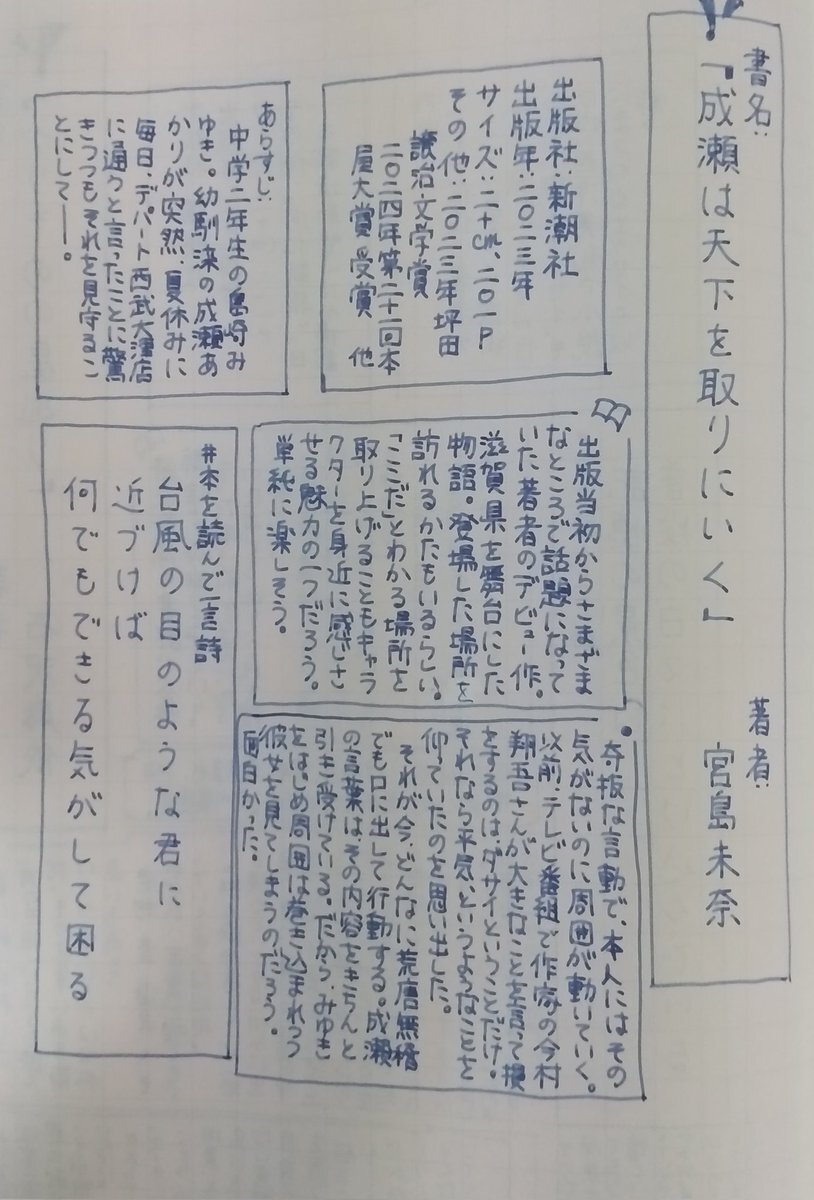 書名:
『成瀬は天下を取りにいく』
著者:
宮島未奈
出版社:新潮社
出版年:二〇二三年
サイズ:二十cm、二〇一P
その他:二〇二三年坪田
譲治文学賞
二〇二四年第二十一回本
屋大賞受賞 他
あらすじ:
中学二年生の島崎み
ゆき。幼馴染の成瀬あ
かりが突然、夏休みに
毎日、デパート西武大津店
に通うと言ったことに驚
きつつもそれを見守るこ
とにして――。
出版当初からさまざま
なところで話題になって
いた著者のデビュー作。
滋賀県を舞台にした
物語。登場した場所を
訪れるかたもいるらしい。
「ここだ」とわかる場所を
取り上げることもキャラ
クターを身近に感じさ
せる魅力の一つだろう。
単純に楽しそう。
奇抜な言動で、本人にはその
気がないのに周囲が動いていく。
以前、テレビ番組で作家の今村
翔吾さんが大きなことを言って損
をするのは、ダサイということだけ。
それなら平気、というようなことを
仰っていたのを思い出した。
それが今、どんなに荒唐無稽
でも口に出して行動する。成瀬
の言葉は、その内容をきちんと
引き受けている。だから、みゆき
をはじめ周囲は巻き込まれつつ
彼女を見てしまうのだろう。
面白かった。
#本を読んで一言詩
台風の目のような君に
近づけば
何でもできる気がして困る